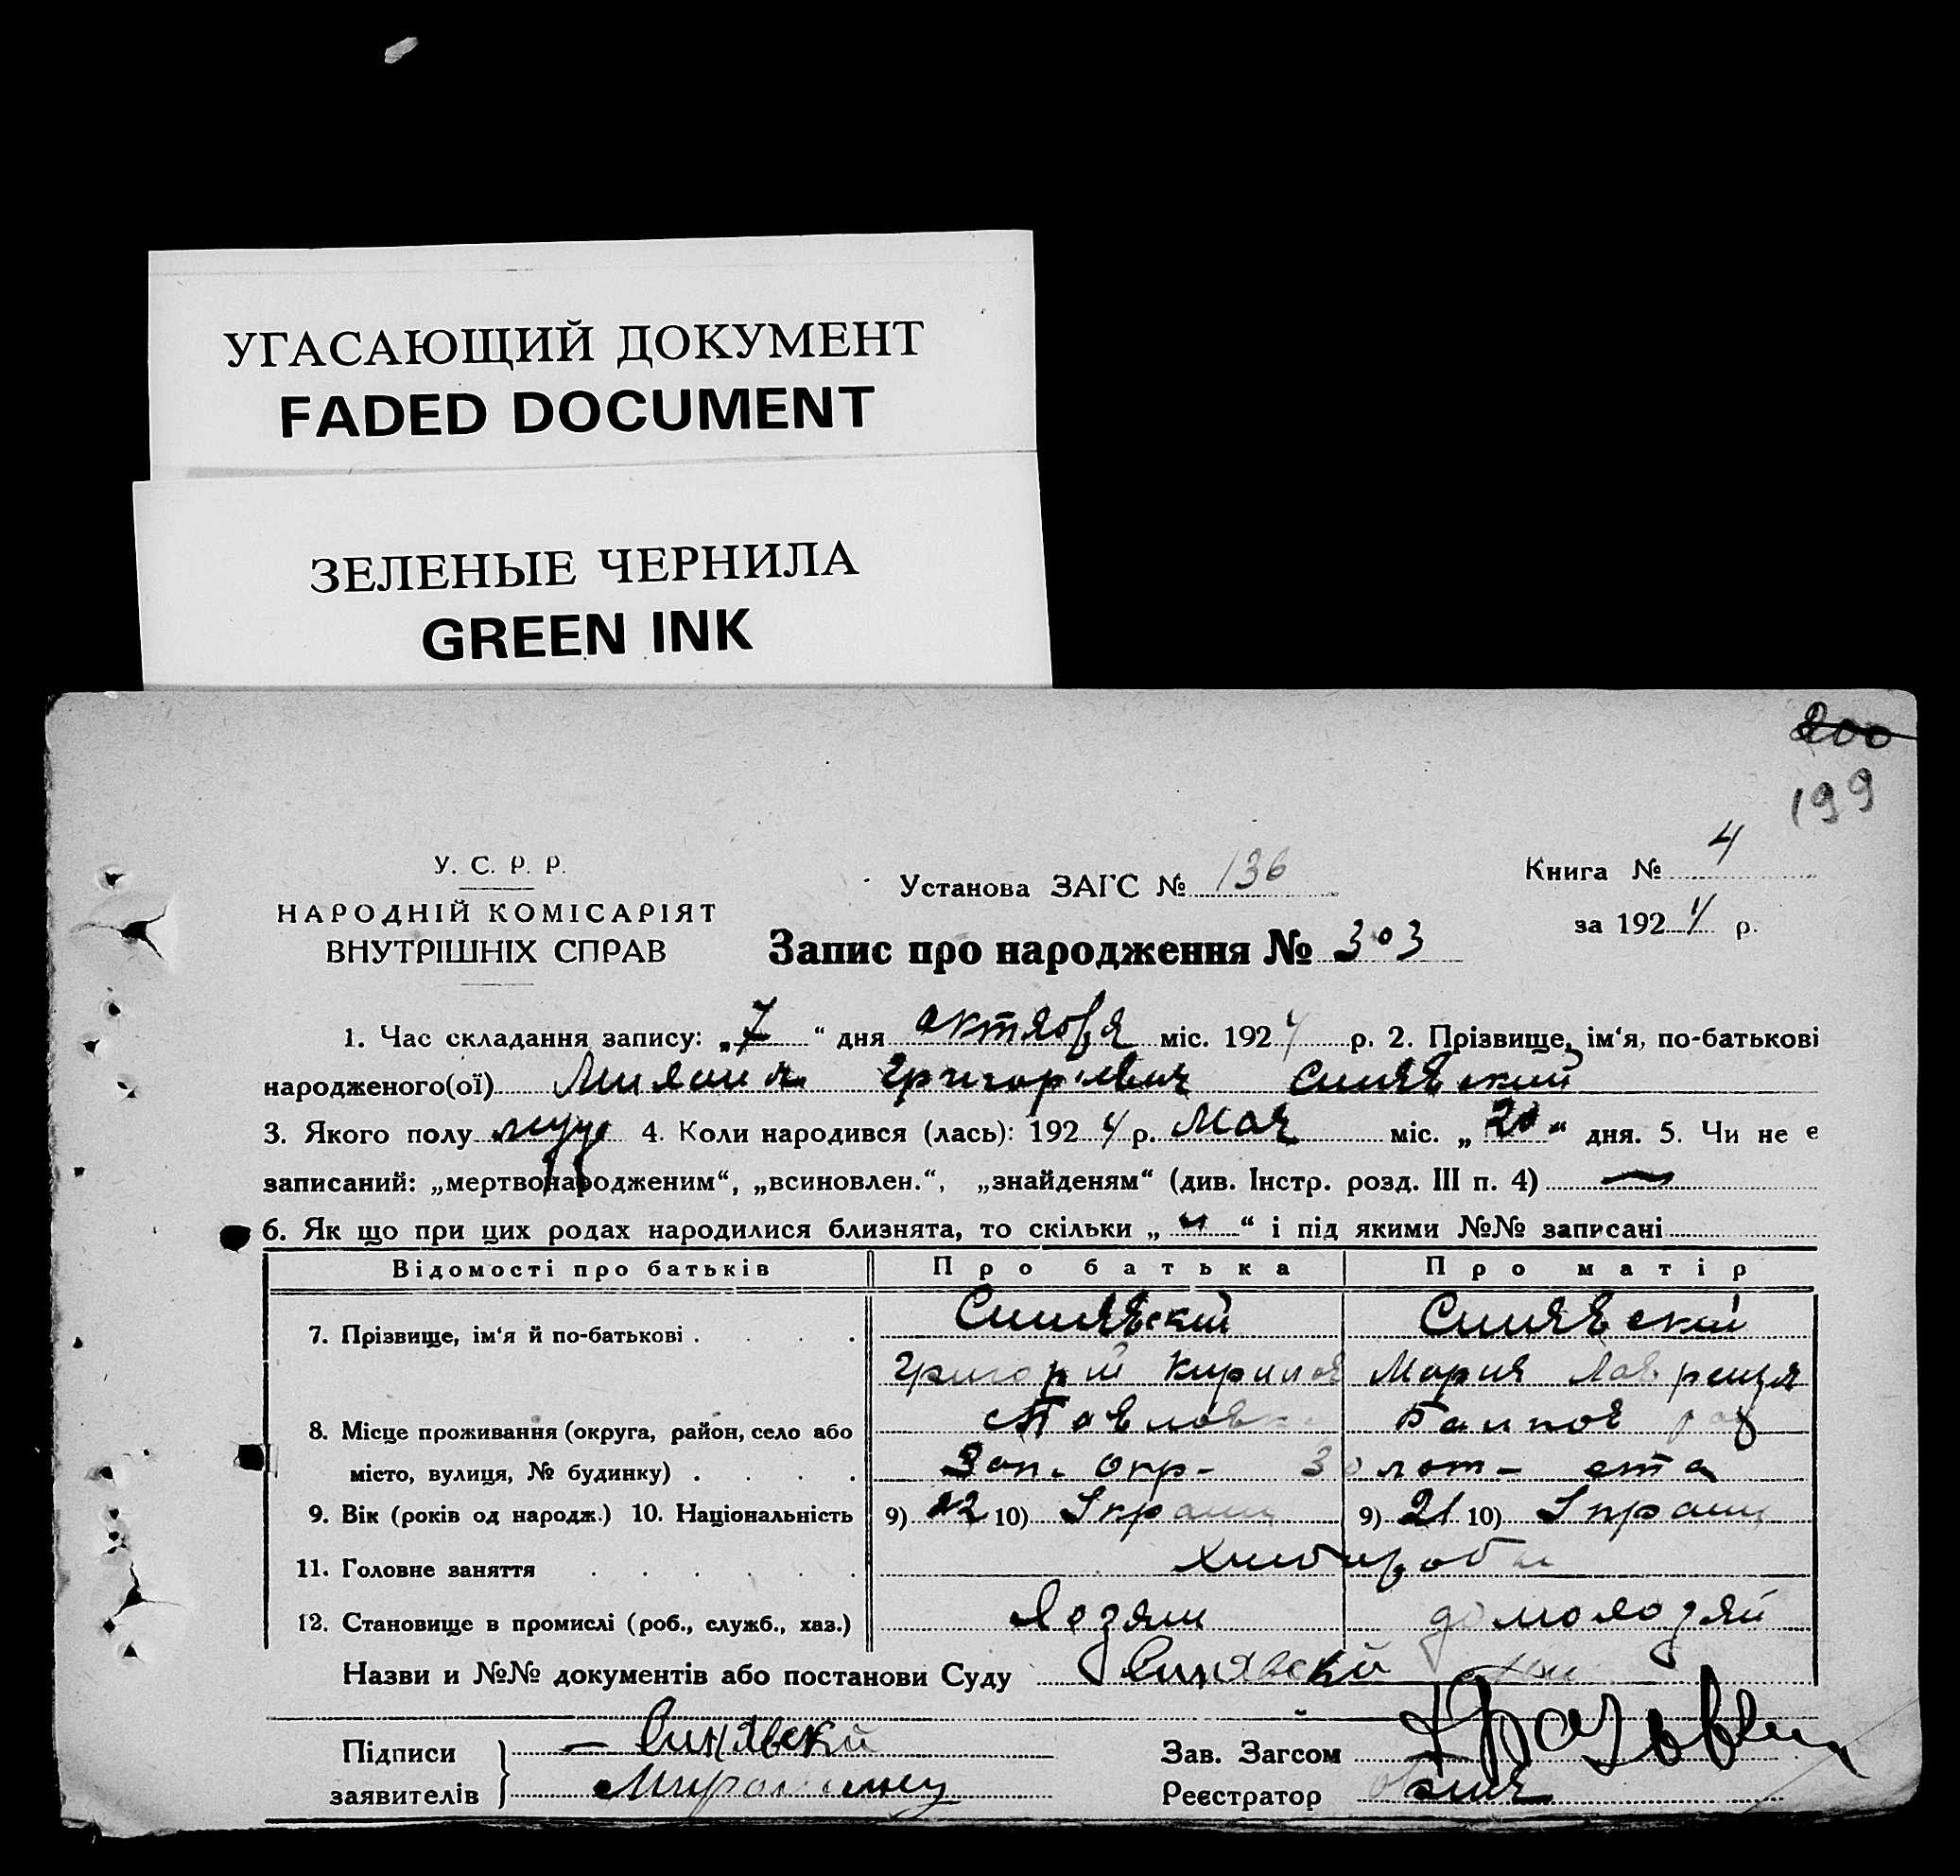 УГАСАЮЩИЙ ДОКУМЕНТ
FADED DOCUMENT
ЗЕЛЕНЫЕ ЧЕРНИЛА
GREEN INK
200
199
У. С. Р. Р.
НАРОДНІЙ КОМІСАРІЯТ
ВНУТРІШНІХ СПРАВ
Установа ЗАГС № 136
Книга № 4
за 1924 р.
Запис про народження № 303
1. Час складання запису: „7“ дня октября міс. 1924 р. 2. Прізвище, ім'я, по-батькові
народженого(ої) Григоріевич Синявский
3. Якого полу муж 4. Коли народився (лась): 1924 р. Мая міс. „20“ дня. 5. Чи не є
записаний: „мертвонародженим“, „всиновлен.“, „знайденям“ (див. Інстр. розд. III п. 4) —
6. Як що при цих родах народилися близнята, то скільки „ “ і під якими №№ записані
Відомості про батьків Про батька Про матір
7. Прізвище, ім'я й по-батькові . . . . Синявский Синявский
Григорий Кирилов Мария
8. Місце проживання (округа, район, село або Павловка
місто, вулиця, № будинку) . . . . Зап. окр-
9. Вік (років од народж.) 10. Національність 9) 22 10) Украин 9) 21 10) Украин
11. Головне заняття . . . . . .
12. Становище в промислі (роб., служб., хаз.) Хозяин
Назви и №№ документів або постанови Суду Синявский
Підписи — Синявский
заявителів
Зав. Загсом
Реєстратор